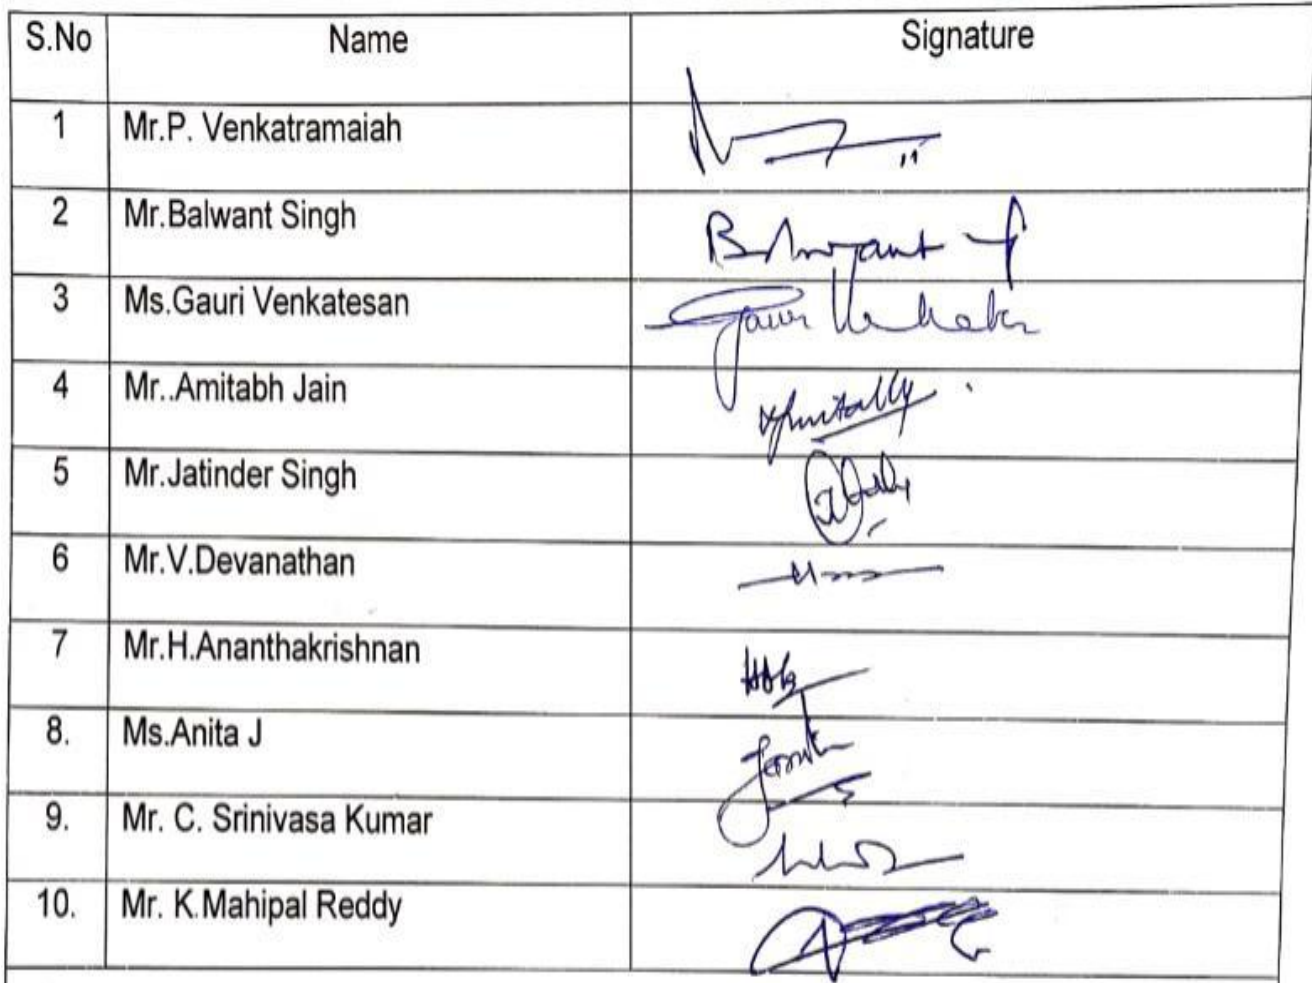 S.No Name Signature
1 Mr.P. Venkatramaiah
2 Mr.Balwant Singh Balwant
3 Ms.Gauri Venkatesan Gauri
4 Mr..Amitabh Jain
5 Mr.Jatinder Singh
6 Mr.V.Devanathan
7 Mr.H.Ananthakrishnan
8. Ms.Anita J
9. Mr. C. Srinivasa Kumar
10. Mr. K.Mahipal Reddy